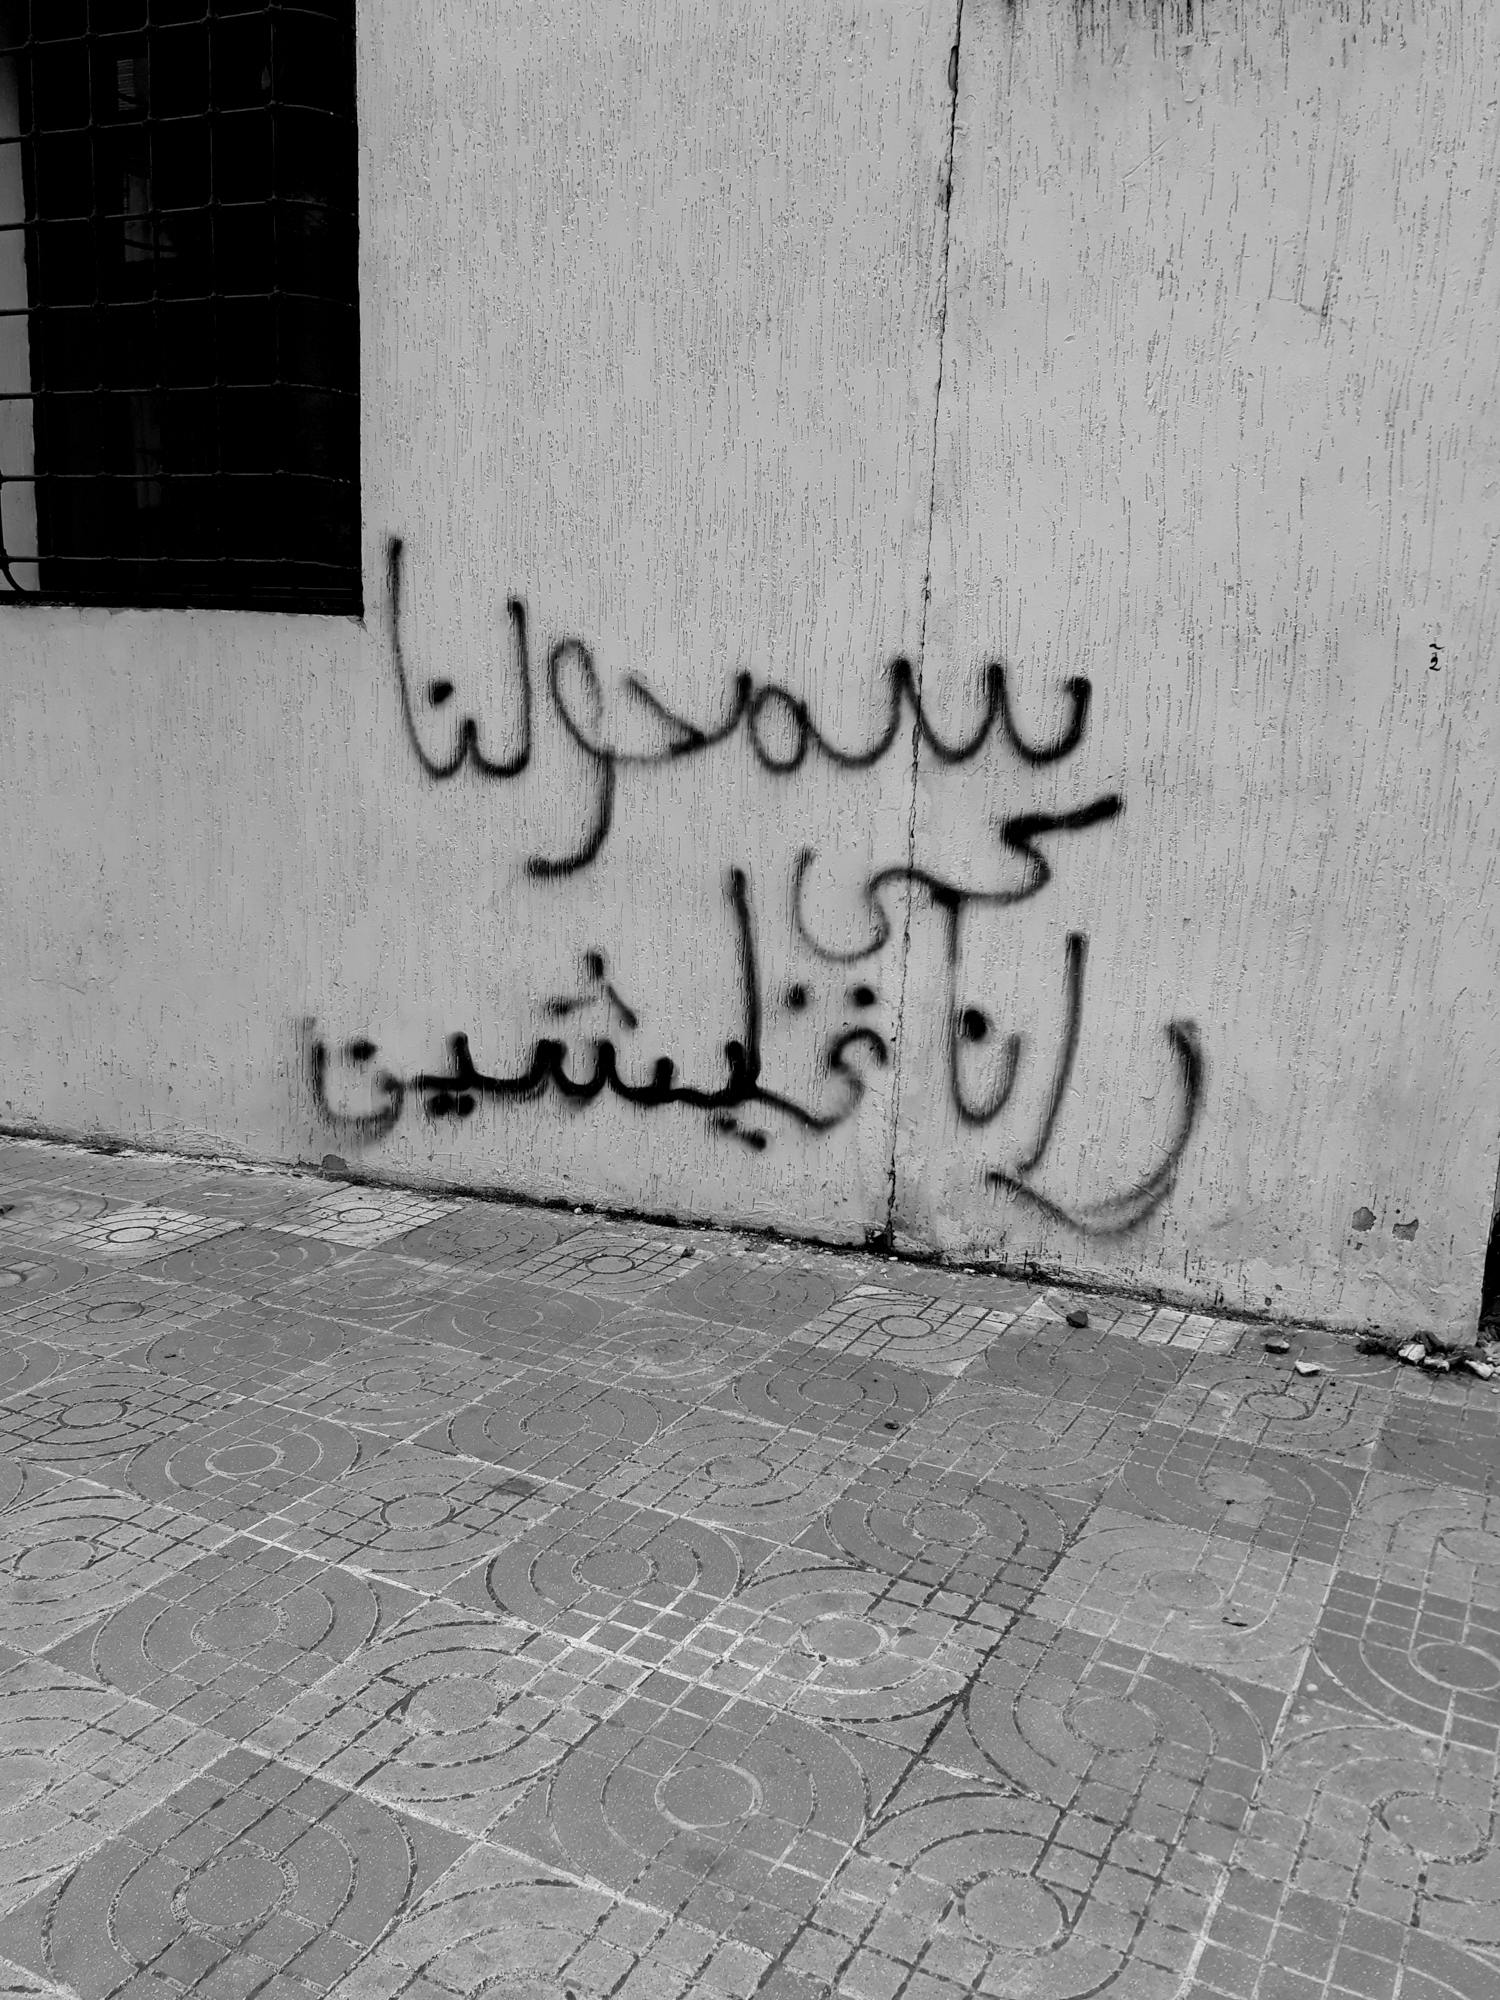 سمحولنا
كي
رانا فليشين